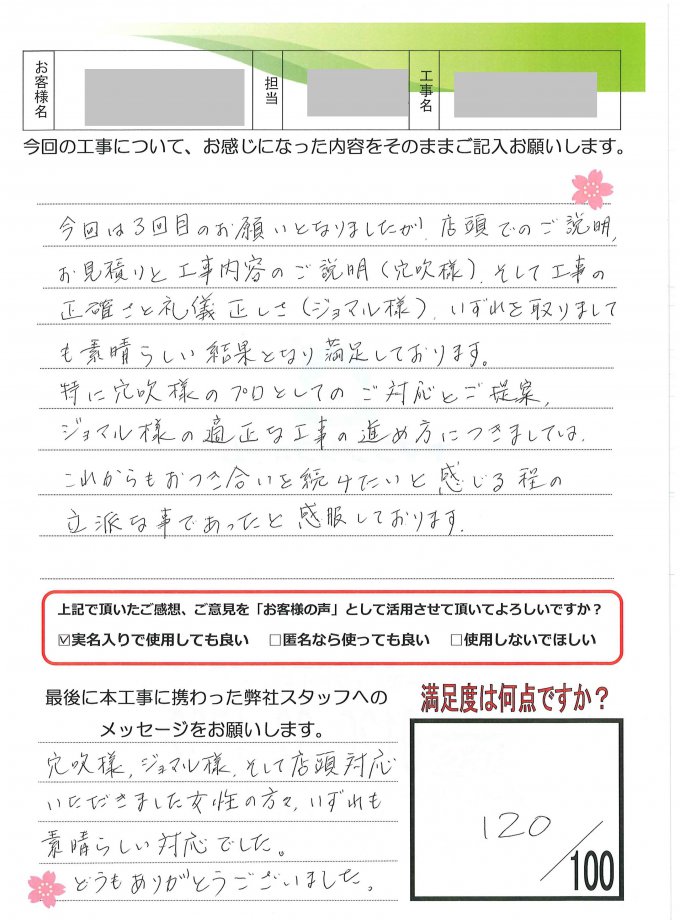 お客様名
担当
工事名
今回の工事について、お感じになった内容をそのままご記入お願いします。
今回は3回目のお願いとなりましたが、店頭でのご説明、
お見積りと工事内容のご説明(穴吹様)、そして工事の
正確さと礼儀正しさ(ジョマル様)、いずれを取りまして
も素晴らしい結果となり満足しております。
特に穴吹様のプロとしてのご対応とご提案、
ジョマル様の適正な工事の進め方につきましては、
これからもおつき合いを続けたいと感じる程の
立派な事であったと感服しております。
上記で頂いたご感想、ご意見を「お客様の声」として活用させて頂いてよろしいですか?
☑実名入りで使用しても良い □匿名なら使っても良い □使用しないでほしい
最後に本工事に携わった弊社スタッフへの
メッセージをお願いします。
穴吹様、ジョマル様、そして店頭対応
いただきました女性の方々、いずれも
素晴らしい対応でした。
どうもありがとうございました。
満足度は何点ですか?
120/100